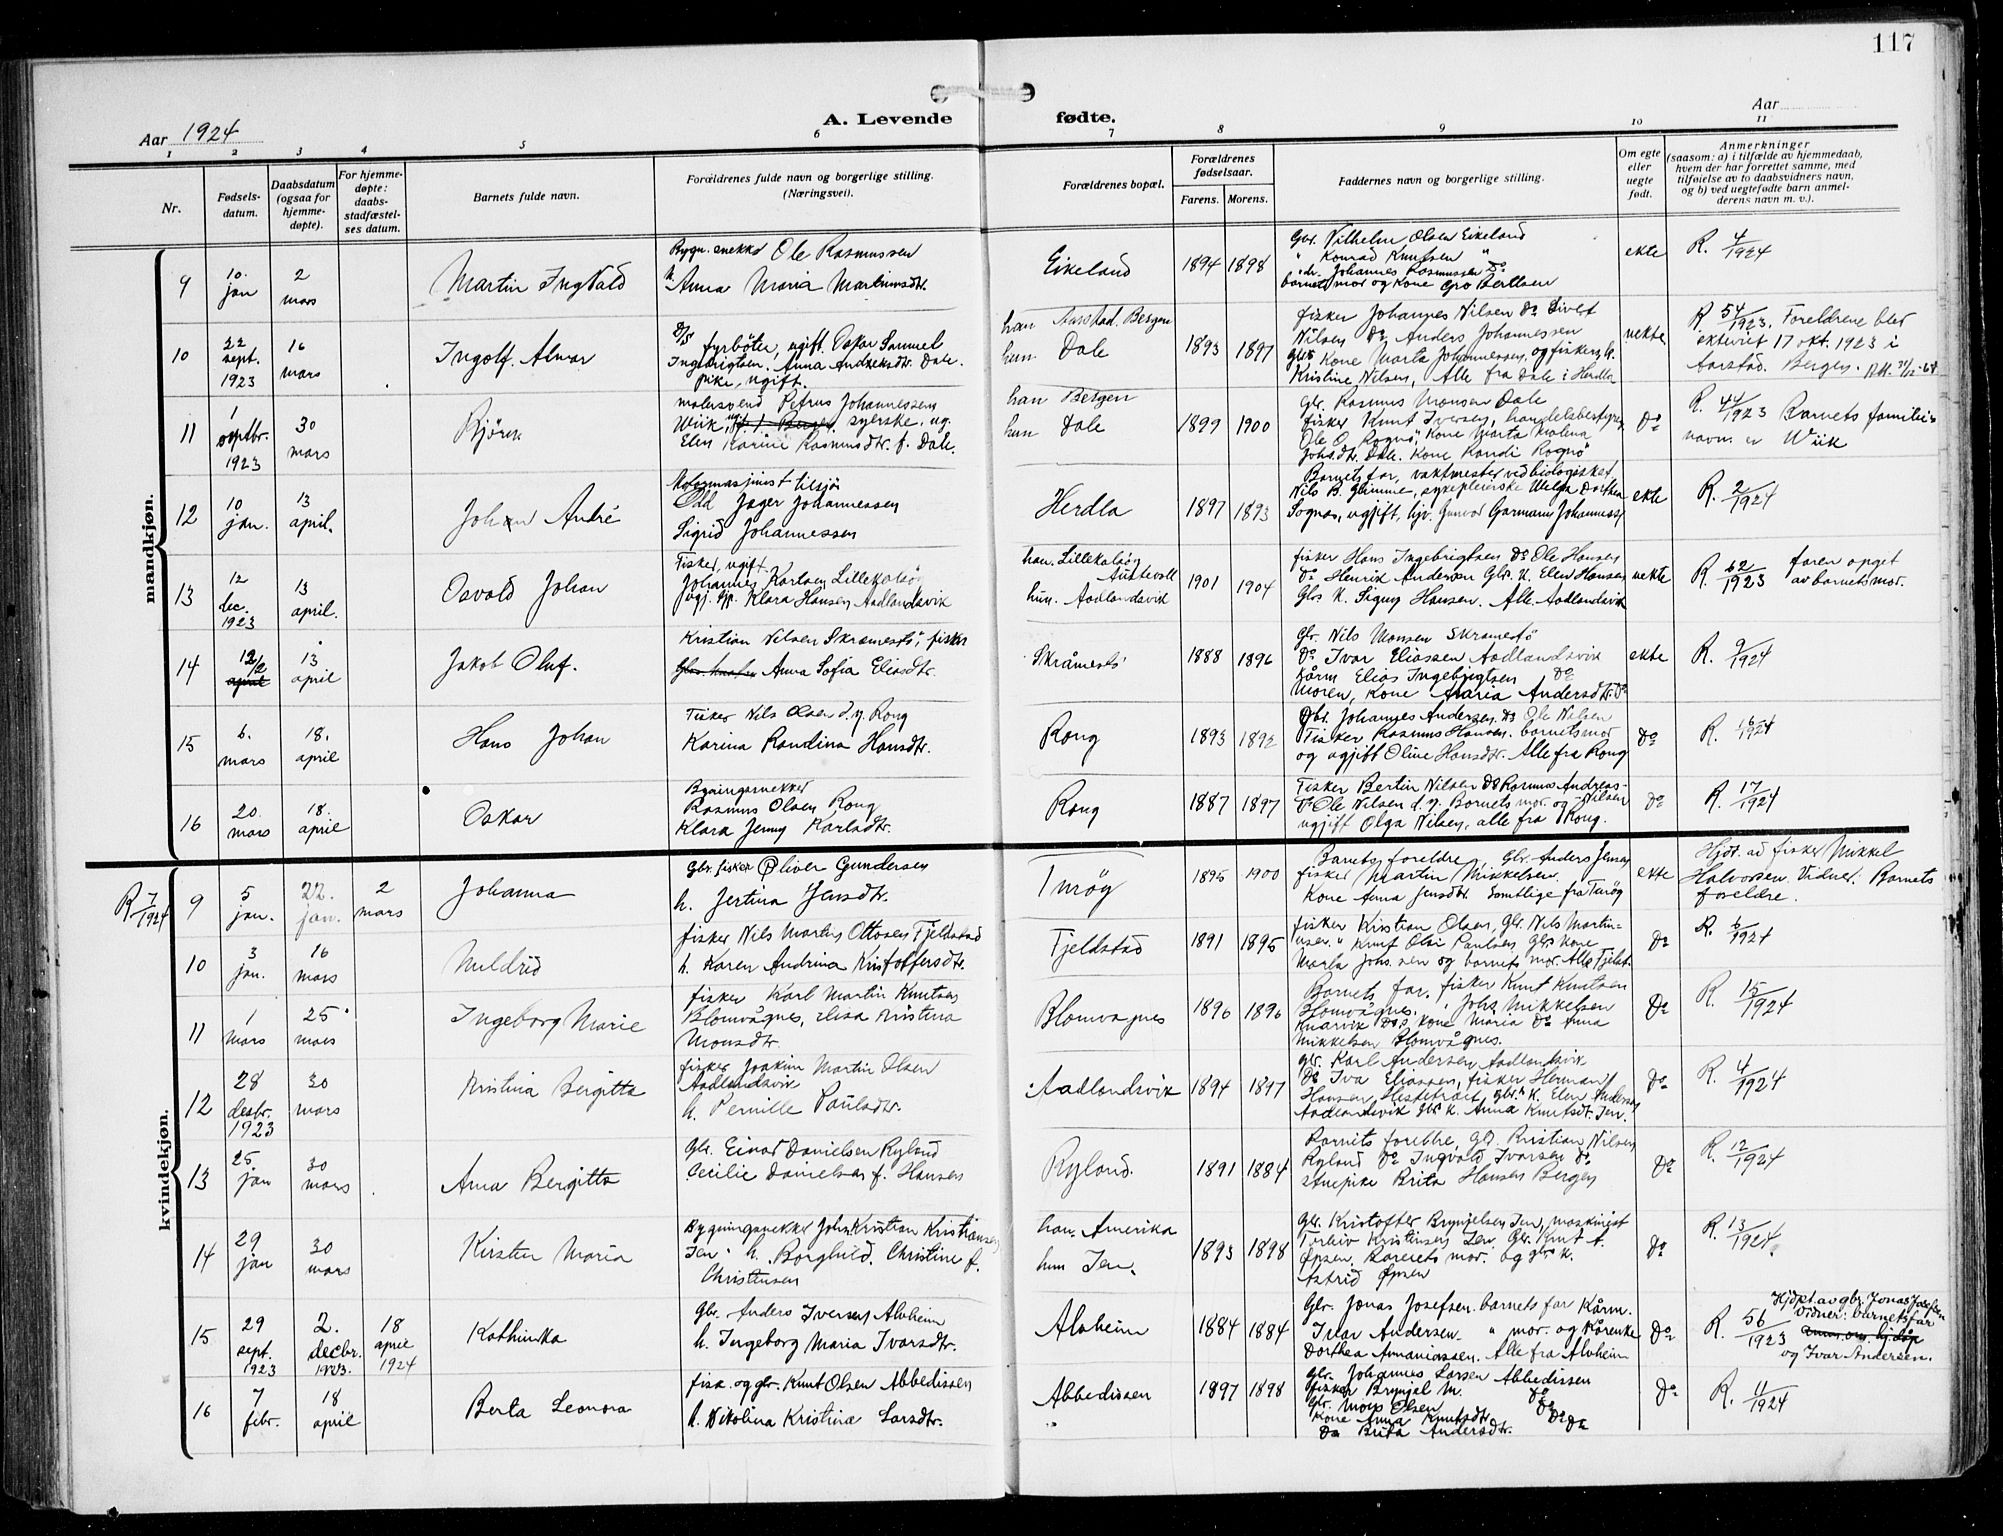 117
Aar 1924
A. Levende fødte.
Aar
1 2 3 4 5 6 7 8 9 10 11
Nr.
Fødselsdatum.
Daabsdatum (ogsaa for hjemmedøpte).
For hjemmedøpte: daabsstadfæstelses datum.
Barnets fulde navn.
Forældrenes fulde navn og borgerlige stilling. (Næringsvei).
Forældrenes bopæl.
Forældrenes fødselsaar.
Farens. Morens.
Faddernes navn og borgerlige stilling.
Om egte eller uegte født.
Anmerkninger
(saasom: a) i tilfælde av hjemmedaab, hvem der har forrettet samme, med tilføielse av to daabsvidners navn, og b) ved uegtefødte barn anmelderens navn m. v.).
mandkjøn.
9 10. jan 2 mars Martin Ingvald
Bygn. snekker Ole Rasmussen
Anna Maria Martinusdtr.
Eikeland 1894 1898
Gbr. Vilhelm Olsen Eikeland
" Konrad Knutsen "
Johannes Rasmussen Do
barnets mor og Kone Gro Bertsen
ekte R. 4/1924
10 22 sept. 1923 16 mars Ingolf Alvar
D/S fyrbøter, ugift. Oskar Samuel
Ingebrigtsen. Anna Andreasdtr. Dale.
pike, ugift.
han Aarstad. Bergen
hun Dale 1893 1897
fisker Johannes Nilsen Do Sivert
Nilsen Do Anders Johannessen
Gbr Kone Marta Johannessen, og fiskers k.
Kristine Nilsen, Alle fra Dale i Herdla
uekte R 54/1923. Foreldrene blev
ekteviet 17 okt. 1923 i
Aarstad. Bergen.
11 1 septbr. 1923 30 mars Bjørn
malersvend Petrus Johannessen
Wiik, syerske, ug.
Elen Karine Rasmusdtr. f. Dale.
han Bergen
hun Dale 1899 1900
Gbr. Rasmus Monsen Dale
fisker Knut Iversen, handelsbestyrer
Ole O. Rognø, Kone Marta Malena
Johs.dtr. Dale. Kone Randi Rognø
Do R. 44/1923 Barnets familienavn er Wiik
12 10 jan. 13 april. Johan André
Motormaskinist tilsjø
Odd Jager Johannessen
Sigrid Johannessen
Herdla 1897 1893
Barnets far, vaktmester ved biologisket
Nils B. Glimme, sykepleierske Helga Dorthea
Sognas, ugift, hjv. Gunvor Garmann Johannesse
ekte R. 2/1924
13 12 dec. 1923 13 april. Osvald Johan
Fisker, ugift.
Johannes Karlsen Lillekalsøy
Klara Hansen Aadlandsvik
han. Lillekalsøy Austevoll
hun. Aadlandsvik 1901 1904
fisker Hans Ingebrigtsen Do Ole Hansen
Do Henrik Andersen Gbr. K. Elen Hansen
Gbr. K. Signy Hansen. Alle Aadlandsvik
uekte R. 62/1923 faren opget av barnets mor.
14 12/2 13 april Jakob Oluf.
Kristian Nilsen Skrämestö, fisker
Anna Sofia Eliasdtr.
Skråmestö 1888 1896
Gbr. Nils Monsen Skramestö
Do Ivar Eliassen Aadlandsvik
Kårm Elias Ingebrigtsen Do
Moren, Kone Maria Andersdtr. Do
ekte R. 9/1924
15 6. mars 18. april Hans Johan
Fisker Nils Olsen d.y. Rong
Karina Randina Hansdtr.
Rong 1893 1892
Gbr. Johannes Andersen. Do Ole Nilsen
Fisker Rasmus Hansen. barnets mor
og ugift Oline Hansdtr. Alle fra Rong
Do R. 16/1924
16 20. mars 18. april Oskar
Bygningssnekker
Rasmus Olsen Rong
Klara Jenny Karlsdtr.
Rong 1887 1897
Fisker Bertin Nilsen Do Rasmus Andreas-
Do Ole Nilsen d.y. Barnets mor. og Nilsen
ugift Olga Nilsen, alle fra Rong.
Do R. 17/1924
kvindekjøn.
R 7/1924 9 5 jan. 22. jan. 2 mars Johanna
Gbr. fisker Oliver Gundersen
h. Jertina Jensdtr.
Turøy 1895 1900
Barnets foreldre, Gbr. Anders Jensen
fisker Martin Mikkelsen.
Kone Anna Jensdtr. Samtlige fra Turøy
ekte Hjdt. ad fisker Mikkel
Halvorsen. Vidner. Barnets
foreldre.
10 3 jan. 16 mars Mildrid
fisker Nils Martin Ottosen Fjeldstad
h. Karen Andrina Kristoffersdtr.
Fjeldstad 1891 1895
fisker Kristian Olsen, Gbr. Nils Martin-
usen. " Knut Olai Paulsen, Gbrs Kone
Marta Johs.sen og barnets mor. Alle Fjelst.
Do R. 6/1924
11 1 mars 25 mars Ingeborg Marie
fisker Karl Martin Knutsen
Blomvågnes, Elisa Kristina
Monsdtr.
Blomvagnes 1896 1896
Barnets far. fisker Knut Knutsen
Blomvågnes, Johs Mikkelsen
Knarvik Do, Kone Maria Do Anna
Mikkelsen Blomvågnes.
Do R. 15/1924
12 28 desbr. 1923 30 mars Kristina Bergitta
fisker Joakim Martin Olsen
Aadlandsvik
h. Pernille Paulsdtr.
Aadlandsvik 1894 1897
gbr. Karl Andersen Aadlandsvik
Do Iva Eliassen, fisker Herman
Hansen Hestetræet gbr. K. Elen Andersen
Aadlandsvik Gbr K. Anna Knutsdt. Jen.
Do R. 4/1924
13 25 jan 30 mars Anna Bergitta
Gbr. Einar Danielsen Ryland
Cecilie Danielsen f. Hansen
Ryland. 1891 1884
Barnets foreldre, Gbr. Kristian Nilsen
Ryland Do Ingvald Ivarsen Do
Stuepike Brita Hansen Bergen
Do R. 12/1924
14 29 jan 30 mars Kirsten Maria
Bygningsnekker Johs. Kristian Kristiansen
Jen. h. Borghild. Christine f.
Christensen
han. Amerika
hun Jen. 1893 1898
Gbr. Kristoffer Brynjelsen Jen, maskinist
Torleiv Kristinsen Jen, Gbr. Knut A.
Øpsen. Barnets mor. og gbrs k.
Astrid Øpsen
Do R. 13/1924
15 29 sept. 1923 2. decbr. 1923. 18 april 1924 Kathinka
Gbr. Anders Iversen Alvheim
h. Ingeborg Maria Ivarsdtr.
Alvheim 1884 1884
Gbr. Jonas Josefsen. barnets far Kårm.
Ivar Andersen. " mor. og Kårenke
Dorthea Annaniassen. Alle fra Alvheim
Do R. 56/1923 Hjdøpt. av gbr. Jonas Josefsen
Vidner: barnets far
og Ivar Andersen.
16 7 febr. 18 april Berta Leonora
fisk. og gbr. Knut Olsen Abbedissen
h. Nikolina Kristina Larsdtr.
Abbedissen 1897 1898
Gbr. Johannes Larsen Abbedissen
fisker Brynjel M. Do
Gbr. Mons Olsen Do
Kone Anna Knutsdtr Do
Do Brita Andersdtr. Do
Do R. 11/1924